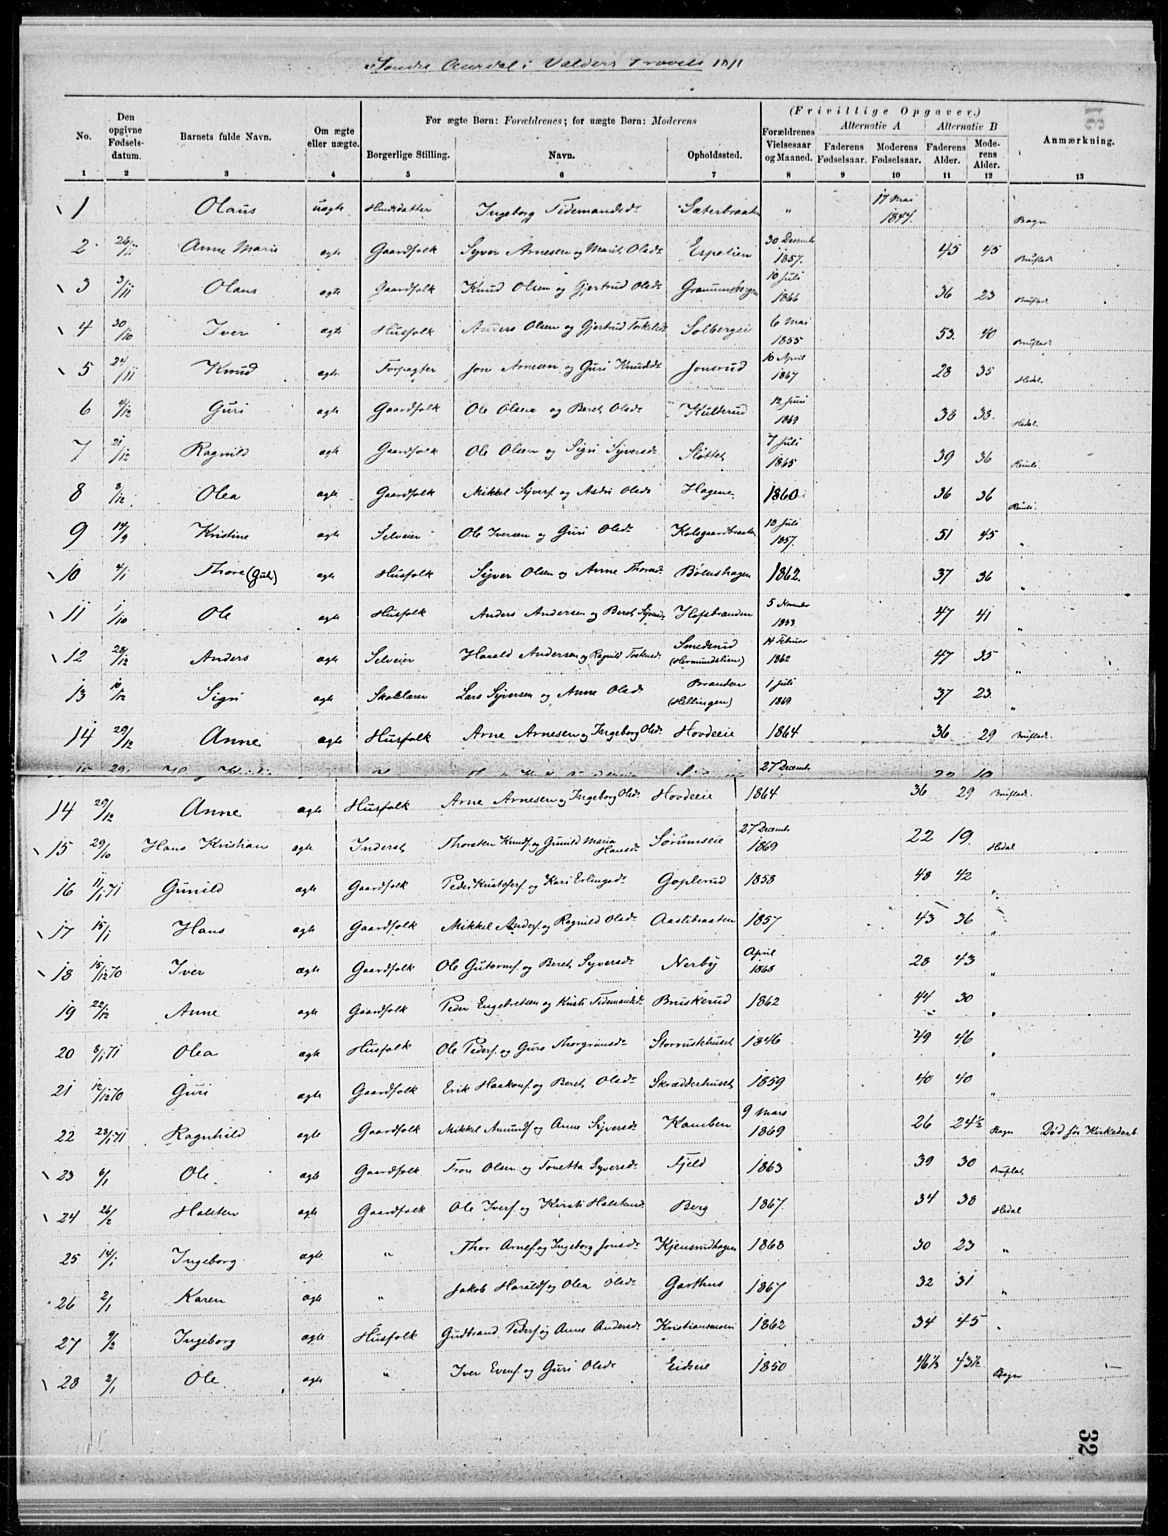 Søndre Aurdal i Valders Provsti 1871
(Frivillige Opgaver.)
No. | Den opgivne Fødselsdatum. | Barnets fulde Navn. | Om ægte eller uægte. | For ægte Børn: Forældrenes; for uægte Børn: Moderens | Forældrenes Vielsesaar og Maaned. | Alternativ A | Alternativ B | Anmærkning.
Borgerlige Stilling. | Navn. | Opholdssted. | Faderens Fødselsaar. | Moderens Fødselsaar. | Faderens Alder. | Moderens Alder.
1 2 3 4 5 6 7 8 9 10 11 12 13
1 Olaus uægte Huusdatter Ingeborg Tidemandsd. Sæterbraaten " 17 Mai 1847. Bagn
2 26/11 Anne Marie ægte Gaardfolk Syver Arnesen og Marit Olsd. Espelien 30 Decemb 1857. 45 45 Bruflat
3 3/11 Olaus ægte Gaardfolk Knud Olsen og Gjertrud Olsd. 10 Juli 1866 36 23 Bruflat
4 30/10 Iver ægte Husfolk Anders Olsen og Gjertrud Torkelsd. Solbergeie 6 Mai 1855 53. 40 Bruflat
5 24/11 Knud ægte Forpagter Jon Arnesen og Guri Knudsd. Jonsrud 10 April 1867 28 35 Hedal
6 4/12 Guri ægte Gaardfolk Ole Olsen og Berit Olsd. Kulterud 12 Juni 1869 38 38. Hedal
7 21/12 Ragnild ægte Gaardfolk Ole Olsen og Sigri Syversd. Sløttet 7 Juli 1865 39 36 Reinli
8 8/12 Olea ægte Gaardfolk Mikkel Syvers. og Astri Olsd. Hagene 1860. 36 36 Reinli.
9 14/9 Kristine ægte Selveier Ole Iversen og Guri Olsd. Kolsgaardbraaten 18 Juli 1857. 51 45 "
10 4/1 Thore (Gul) ægte Husfolk Syver Olsen og Anne Thorsd. Bølushagen 1862. 37 36 "
11 1/10 Ole ægte Husfolk Anders Andersen og Berit Syversd. Hofsbraaten 5 November 1853. 47 41 "
12 28/12 Anders ægte Selveier Harald Andersen og Ragnild Torkelsd. Smedsrud (Hermundslien) 14 Februar 1862 47 35 "
13 10/12 Sigri ægte Skolelærer Lars Syversen og Anne Olsd. Braaten (Hellingen) 1 Juli 1869 37 23. "
14 29/12 Anne ægte Husfolk Arne Arnesen og Ingeborg Olsd. Hovdeeie 1864 36 29 Bruflat
27 Decemb
14 29/12 Anne ægte Husfolk Arne Arnesen og Ingeborg Olsd. Hovdeeie 1864 36 29 Bruflat.
15 29/10 Hans Kristian ægte Inderst Thorsten Knuds. og Gunild Maria Hansd. Sørumseie 27 Decemb 1869 22 19. Hedal
16 11/1 71 Gunild ægte Gaardfolk Peder Kristofers. og Kari Erlingsd. Goplerud 1858 48 42 "
17 15/1 Hans ægte Gaardfolk Mikkel Anders. og Ragnild Olsd. Aaslibraaten 1857. 43 36 "
18 15/12 70 Iver ægte Gaardfolk Ole Gutorms. og Berit Syversd. Nerby April 1868 28 43 "
19 22/12 Anne ægte Gaardfolk Peder Engebretsen og Kristi Tidemandsd. Bruskerud 1862 44 30 "
20 8/1 71 Olea ægte Husfolk Ole Peders. og Guro Thorgrimsd. Storrustehuset 1846 49 46 "
21 12/12 70 Guri ægte Gaardfolk Erik Haakons. og Berit Olsd. Skrædderhuset 1859 40 40 "
22 23/1 71 Ragnhild ægte Gaardfolk Mikkel Amunds. og Anne Syversd. Kamben 9 Mars 1869 26 24½ Bagn Død før Kirkedaab
23 6/1 Ole. ægte Gaardfolk Tron Olsen og Tonetta Syversd. Fjeld 1863 39 30 Bruflat
24 26/2 Halsten ægte Gaardfolk Ole Ivers. og Kirsti Halstensd. Berg 1867. 34 38 Hedal
25 14/1 Ingeborg ægte " Thor Arnes. og Ingeborg Jonsd. Kjensrudhagen 1868 30 23 "
26 2/1 Karen ægte " Jakob Haralds. og Olea Olsd. Garthus 1867 32 31 "
27 9/2 Ingeborg ægte Husfolk Gudbrand Peders. og Anne Andersd. Kristiansmoen 1862 34 45 "
28 2/1 Ole. ægte " Iver Evens. og Guri Olsd. Eidseie 1850 46½ 43½ Bagn
32